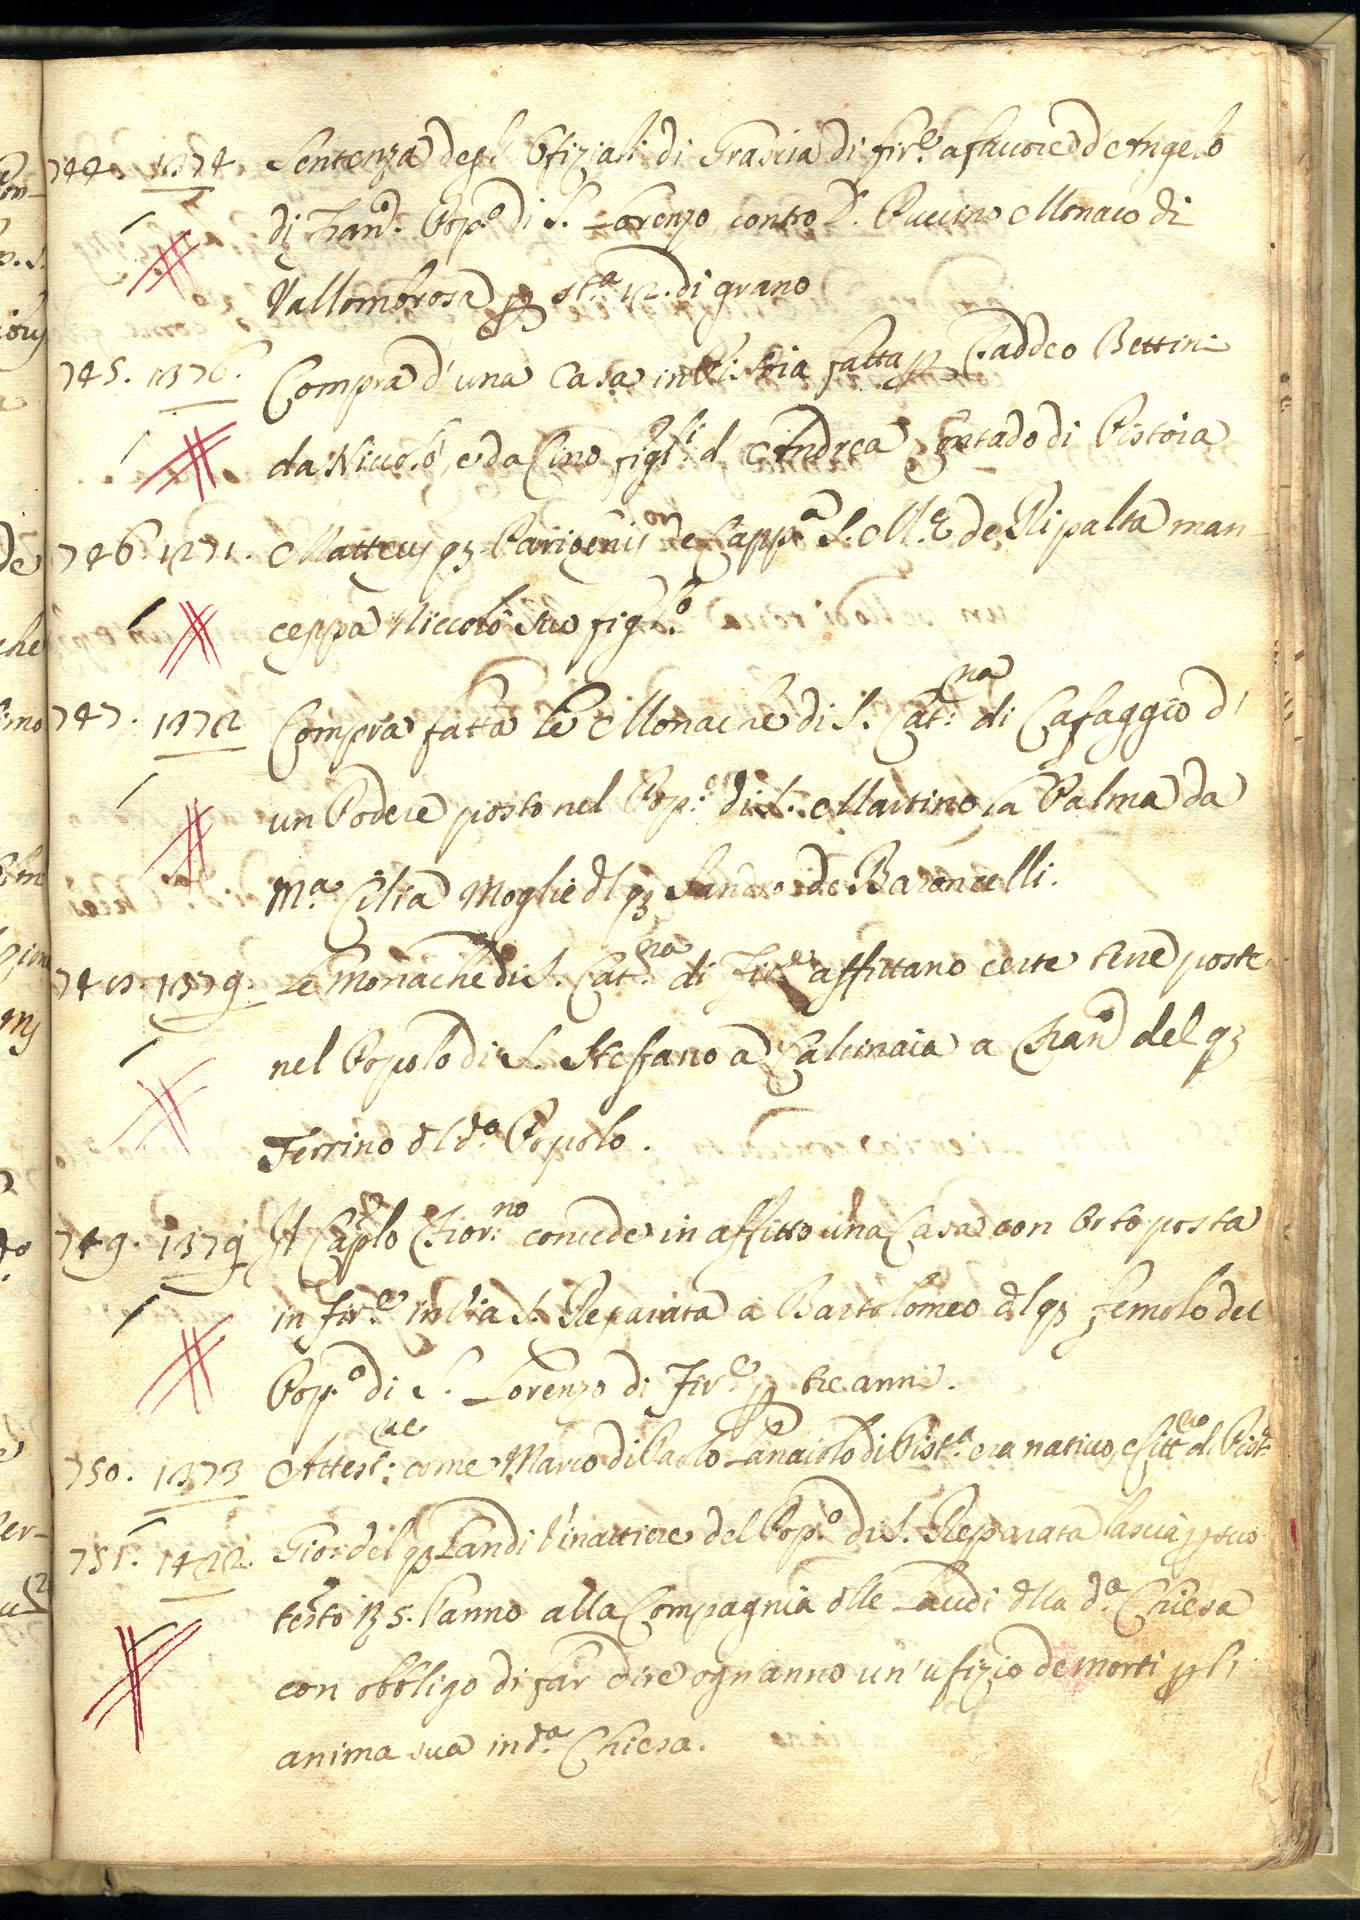 744. 1374. Sentenza degl' Ofiziali di Grascia di Fir.e a favore d'Angelo
di Fran.o Pop.o di S. Lorenzo contro D. Puccino Monaco di
Vallombrosa p st.a 12. di grano
745. 1376. Compra d'una Casa in Pistoia fatta p Taddeo Bettini
da Niccolò, e da Cino figl.i d'Andrea Contado di Pistoia
746. 1271. Matteus q3 Parigenis de Capp.a S. M.e de Ripalta man
ceppa Niccolò suo figl.o
747. 1372 Compra fatta le Monache di S. Cat.na di Cafaggio d'
un Podere posto nel Pop.o di S. Martino la Palma da
M.a Cilia Moglie dl q3 Sandro de Baroncelli.
748. 1379. Le Monache di S. Cat.na di Fir.e affittano certe terre poste
nel Popolo di S. Steffano a Calcinaia a Fran.o del q3
Ferrino dl d.o Popolo.
749. 1379 Il Caplo Fior.no concede in affitto una Casa con Orto posta
in Fir.e in Via S. Reparata a Bartolomeo dl q3 del
Pop.o di S. Lorenzo di Fir.e p tre anni.
750. 1373 Attest.ne come Marco di Paolo Lanaiolo di Pist.a era nativo, e Citt.no di Pist.a
751. 1422. Gio: del q3 Landi Vinattiere del Pop.o di S. Reparata lascia p suo
testo 5. l'anno alla Compagnia dlle Laudi dlla d.a Chiesa
con obbligo di far dire ogn'anno un'ufizio de morti p l'
anima sua in d.a Chiesa.